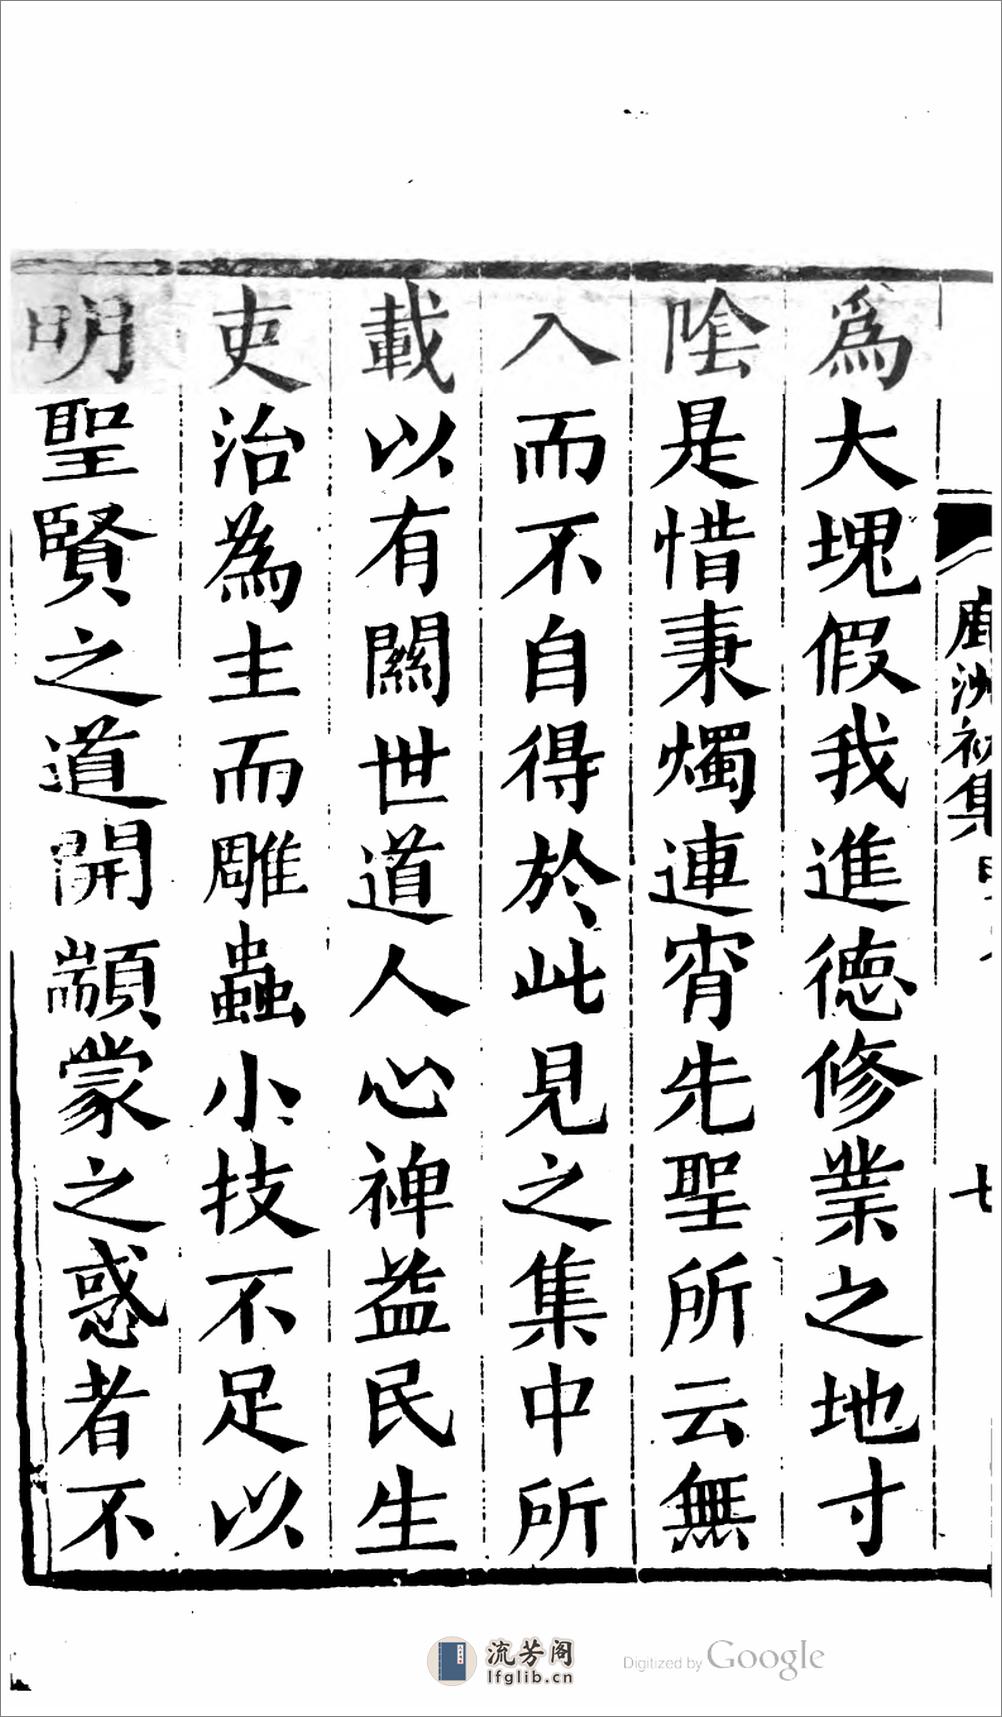 爲大塊假我進德修業之地寸
陰是惜秉燭連宵先聖所云無
入而不自得於此見之集中所
載以有關世道人心裨益民生
吏治為主而雕蟲小技不足以
明聖賢之道開顓蒙之惑者不
鹿洲初集
七
流芳阁
lfglib.cn
Digitized by Google